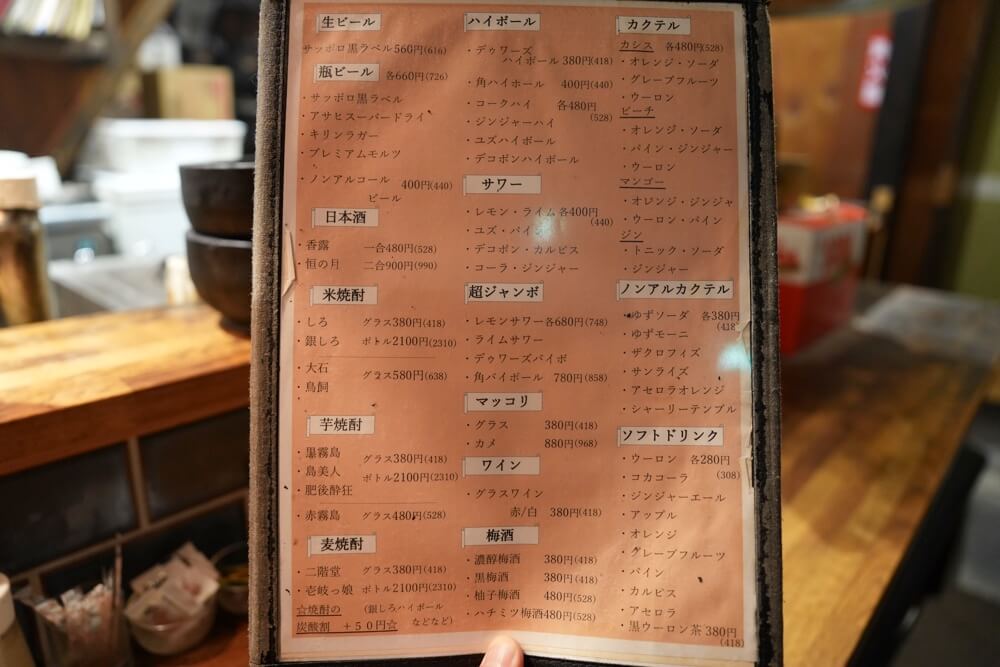 生ビール
サッポロ黒ラベル560円(616)
瓶ビール 各660円(726)
・サッポロ黒ラベル
・アサヒスーパードライ
・キリンラガー
・プレミアムモルツ
・ノンアルコール 400円(440)
ビール
日本酒
・香露 一合480円(528)
・恒の月 二合900円(990)
米焼酎
・しろ グラス380円(418)
・銀しろ ボトル2100円(2310)
・大石
グラス580円(638)
・鳥飼
芋焼酎
・黒霧島
グラス380円(418)
・島美人
ボトル2100円(2310)
・肥後酔狂
・赤霧島 グラス480円(528)
麦焼酎
・二階堂 グラス380円(418)
・壱岐っ娘 ボトル2100円(2310)
☆焼酎の (銀しろハイボール
炭酸割 +50円☆ などなど)
ハイボール
・デゥワーズ
ハイボール 380円(418)
・角ハイボール 400円(440)
・コークハイ 各480円
(528)
・ジンジャーハイ
・ユズハイボール
・デコポンハイボール
サワー
・レモン・ライム各400円
(440)
・ユズ・パイン
・デコポン・カルピス
・コーラ・ジンジャー
超ジャンボ
・レモンサワー各680円(748)
・ライムサワー
・デゥワーズバイボ
・角バイボール 780円(858)
マッコリ
・グラス 380円(418)
・カメ 880円(968)
ワイン
・グラスワイン
赤/白 380円(418)
梅酒
・濃醇梅酒 380円(418)
・黒梅酒 380円(418)
・柚子梅酒 480円(528)
・ハチミツ梅酒480円(528)
カクテル
カシス 各480円(528)
・オレンジ・ソーダ
・グレープフルーツ
・ウーロン
ピーチ
・オレンジ・ソーダ
・パイン・ジンジャー
・ウーロン
マンゴー
・オレンジ・ジンジャ
・ウーロン・パイン
ジン
・トニック・ソーダ
・ジンジャー
ノンアルカクテル
・ゆずソーダ 各380円
(418
・ゆずモーニ
・ザクロフィズ
・サンライズ
・アセロラオレンジ
・シャーリーテンプル
ソフトドリンク
・ウーロン 各280円
(308)
・コカコーラ
・ジンジャーエール
・アップル
・オレンジ
・グレープフルーツ
・パイン
・カルピス
・アセロラ
・黒ウーロン茶 380円
(418)